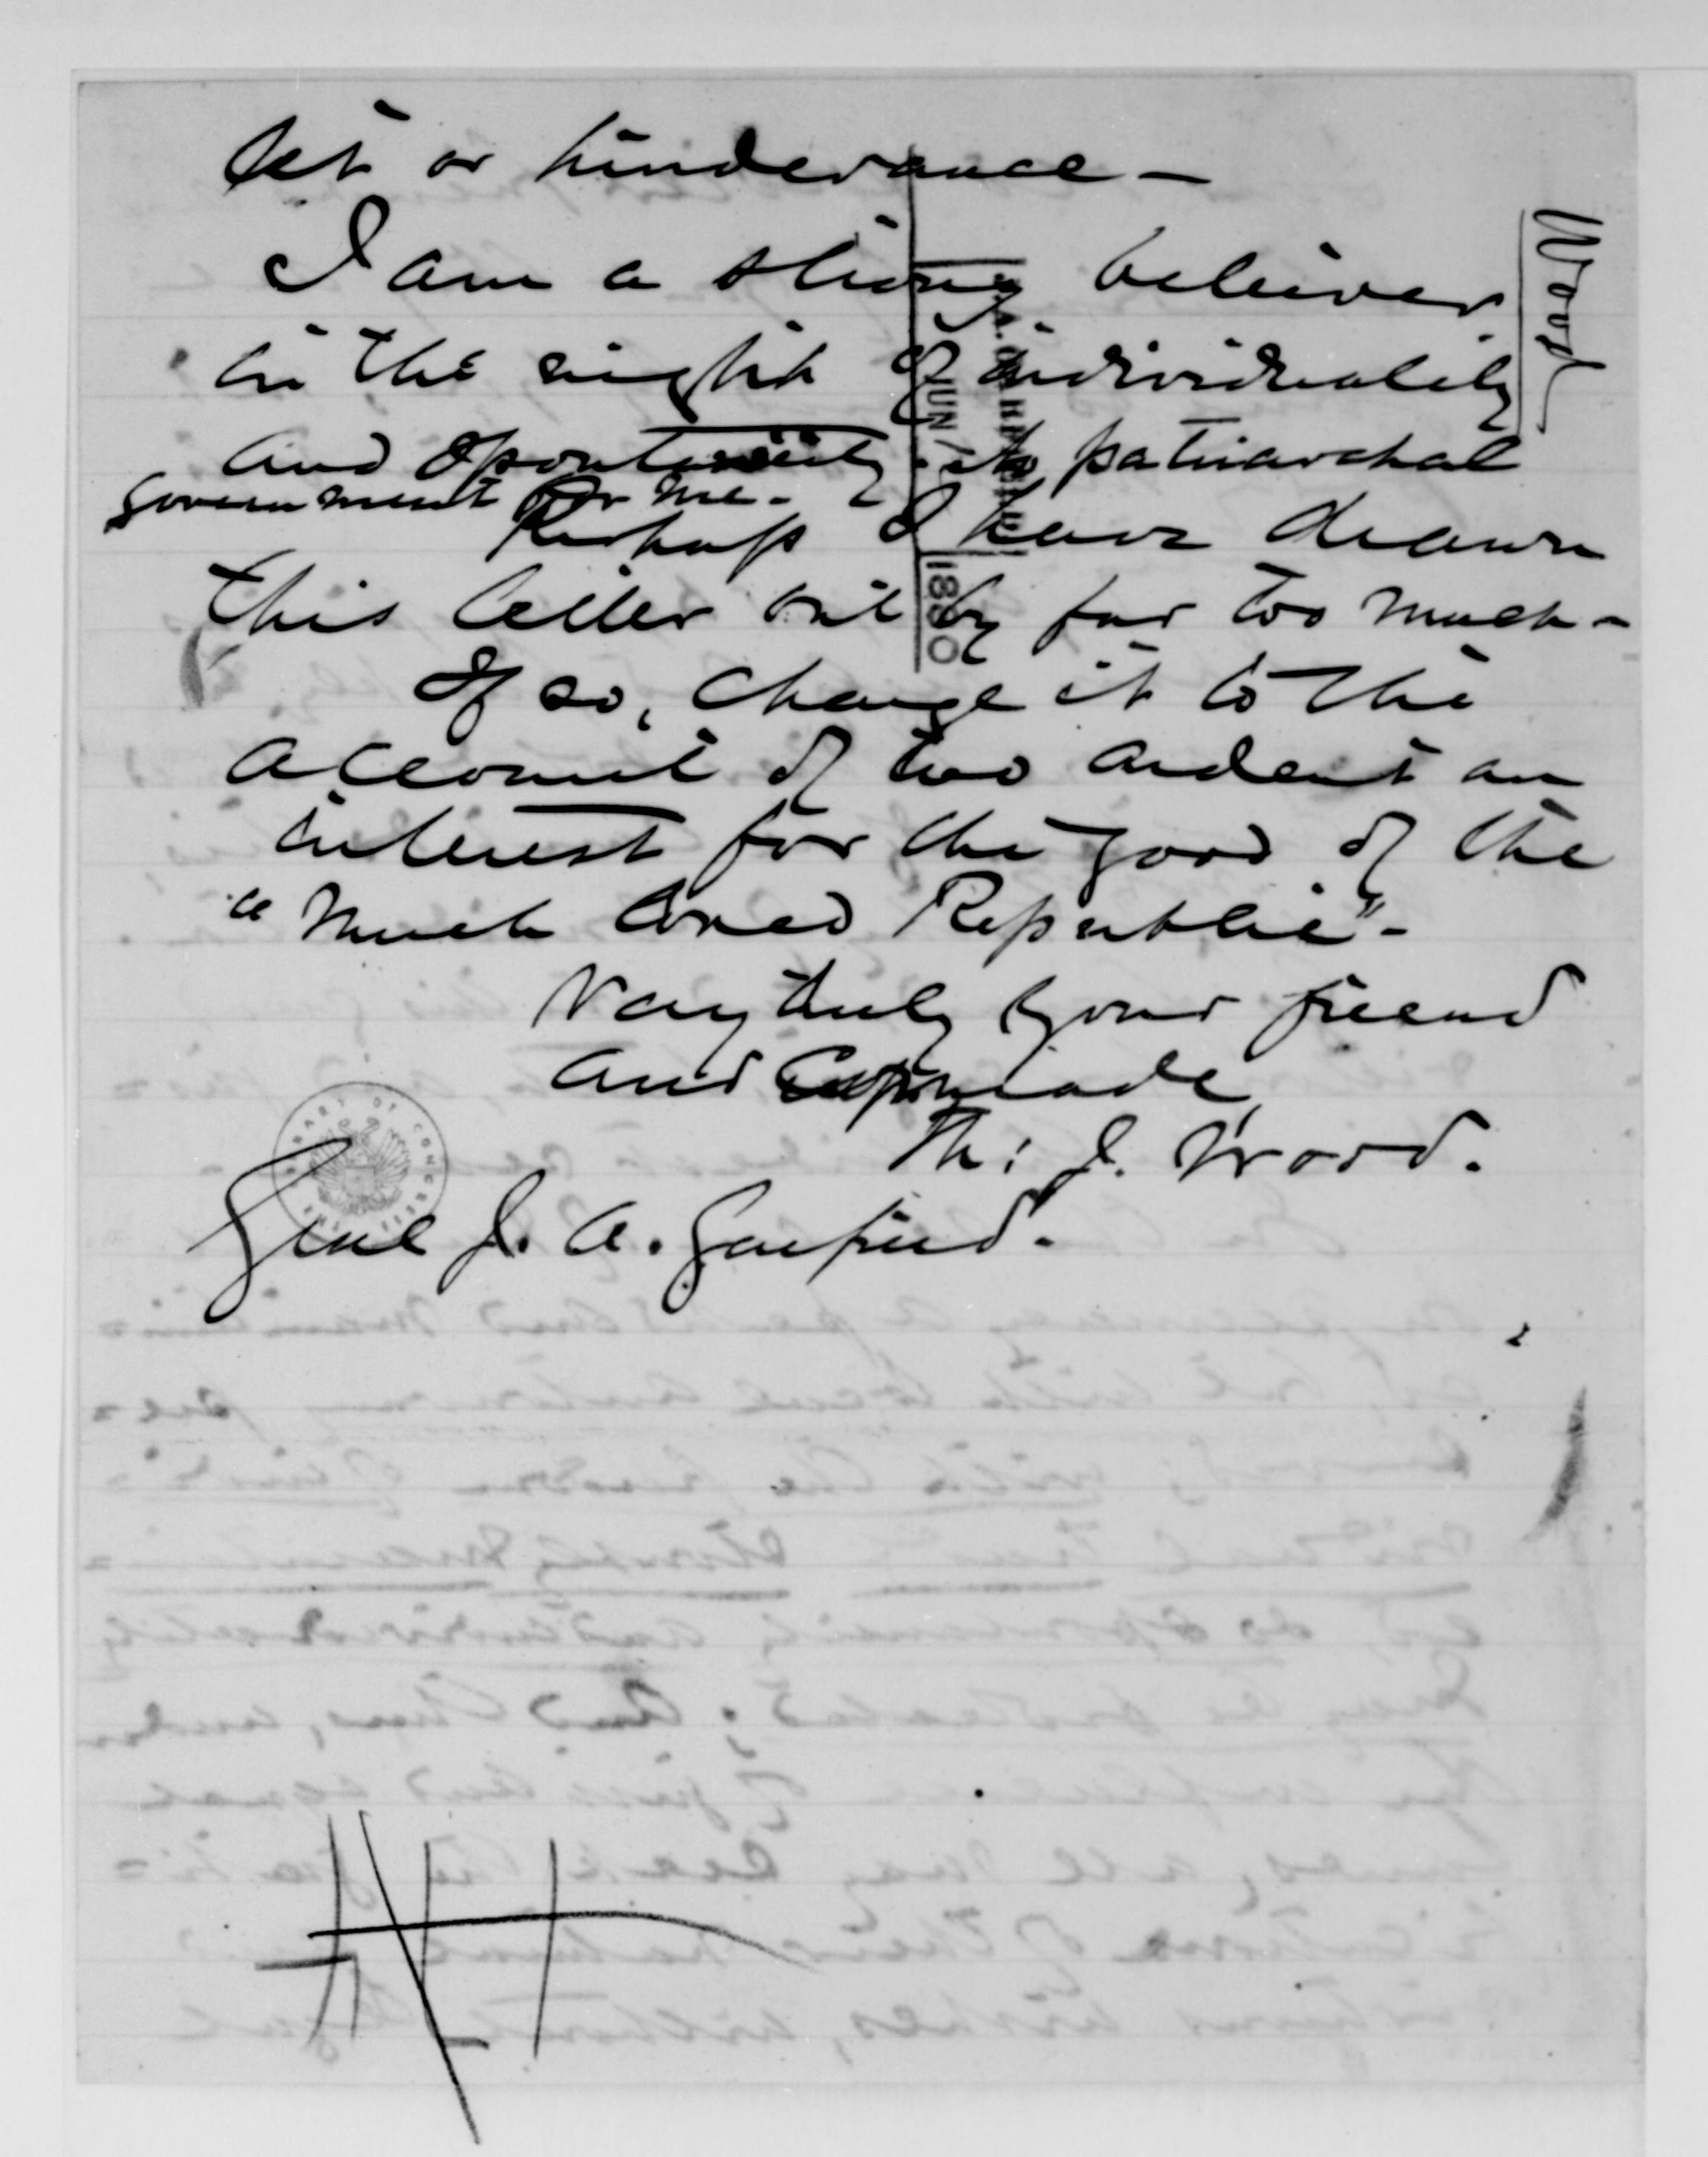 let or hinderance —
I am a strong believer
in the right of individuality
and spontaniety. No patriarchal
government for me.
Perhaps I have drawn
this letter out by far too much -
If so, charge it to the
account of too ardent an
interest for the good of the
"much loved Republic" -
Very truly your friend
and Comrade
Th: J. Wood.
Genl J. A. Garfield.
Wood
JUN
1880
LIBRARY OF CONGRESS